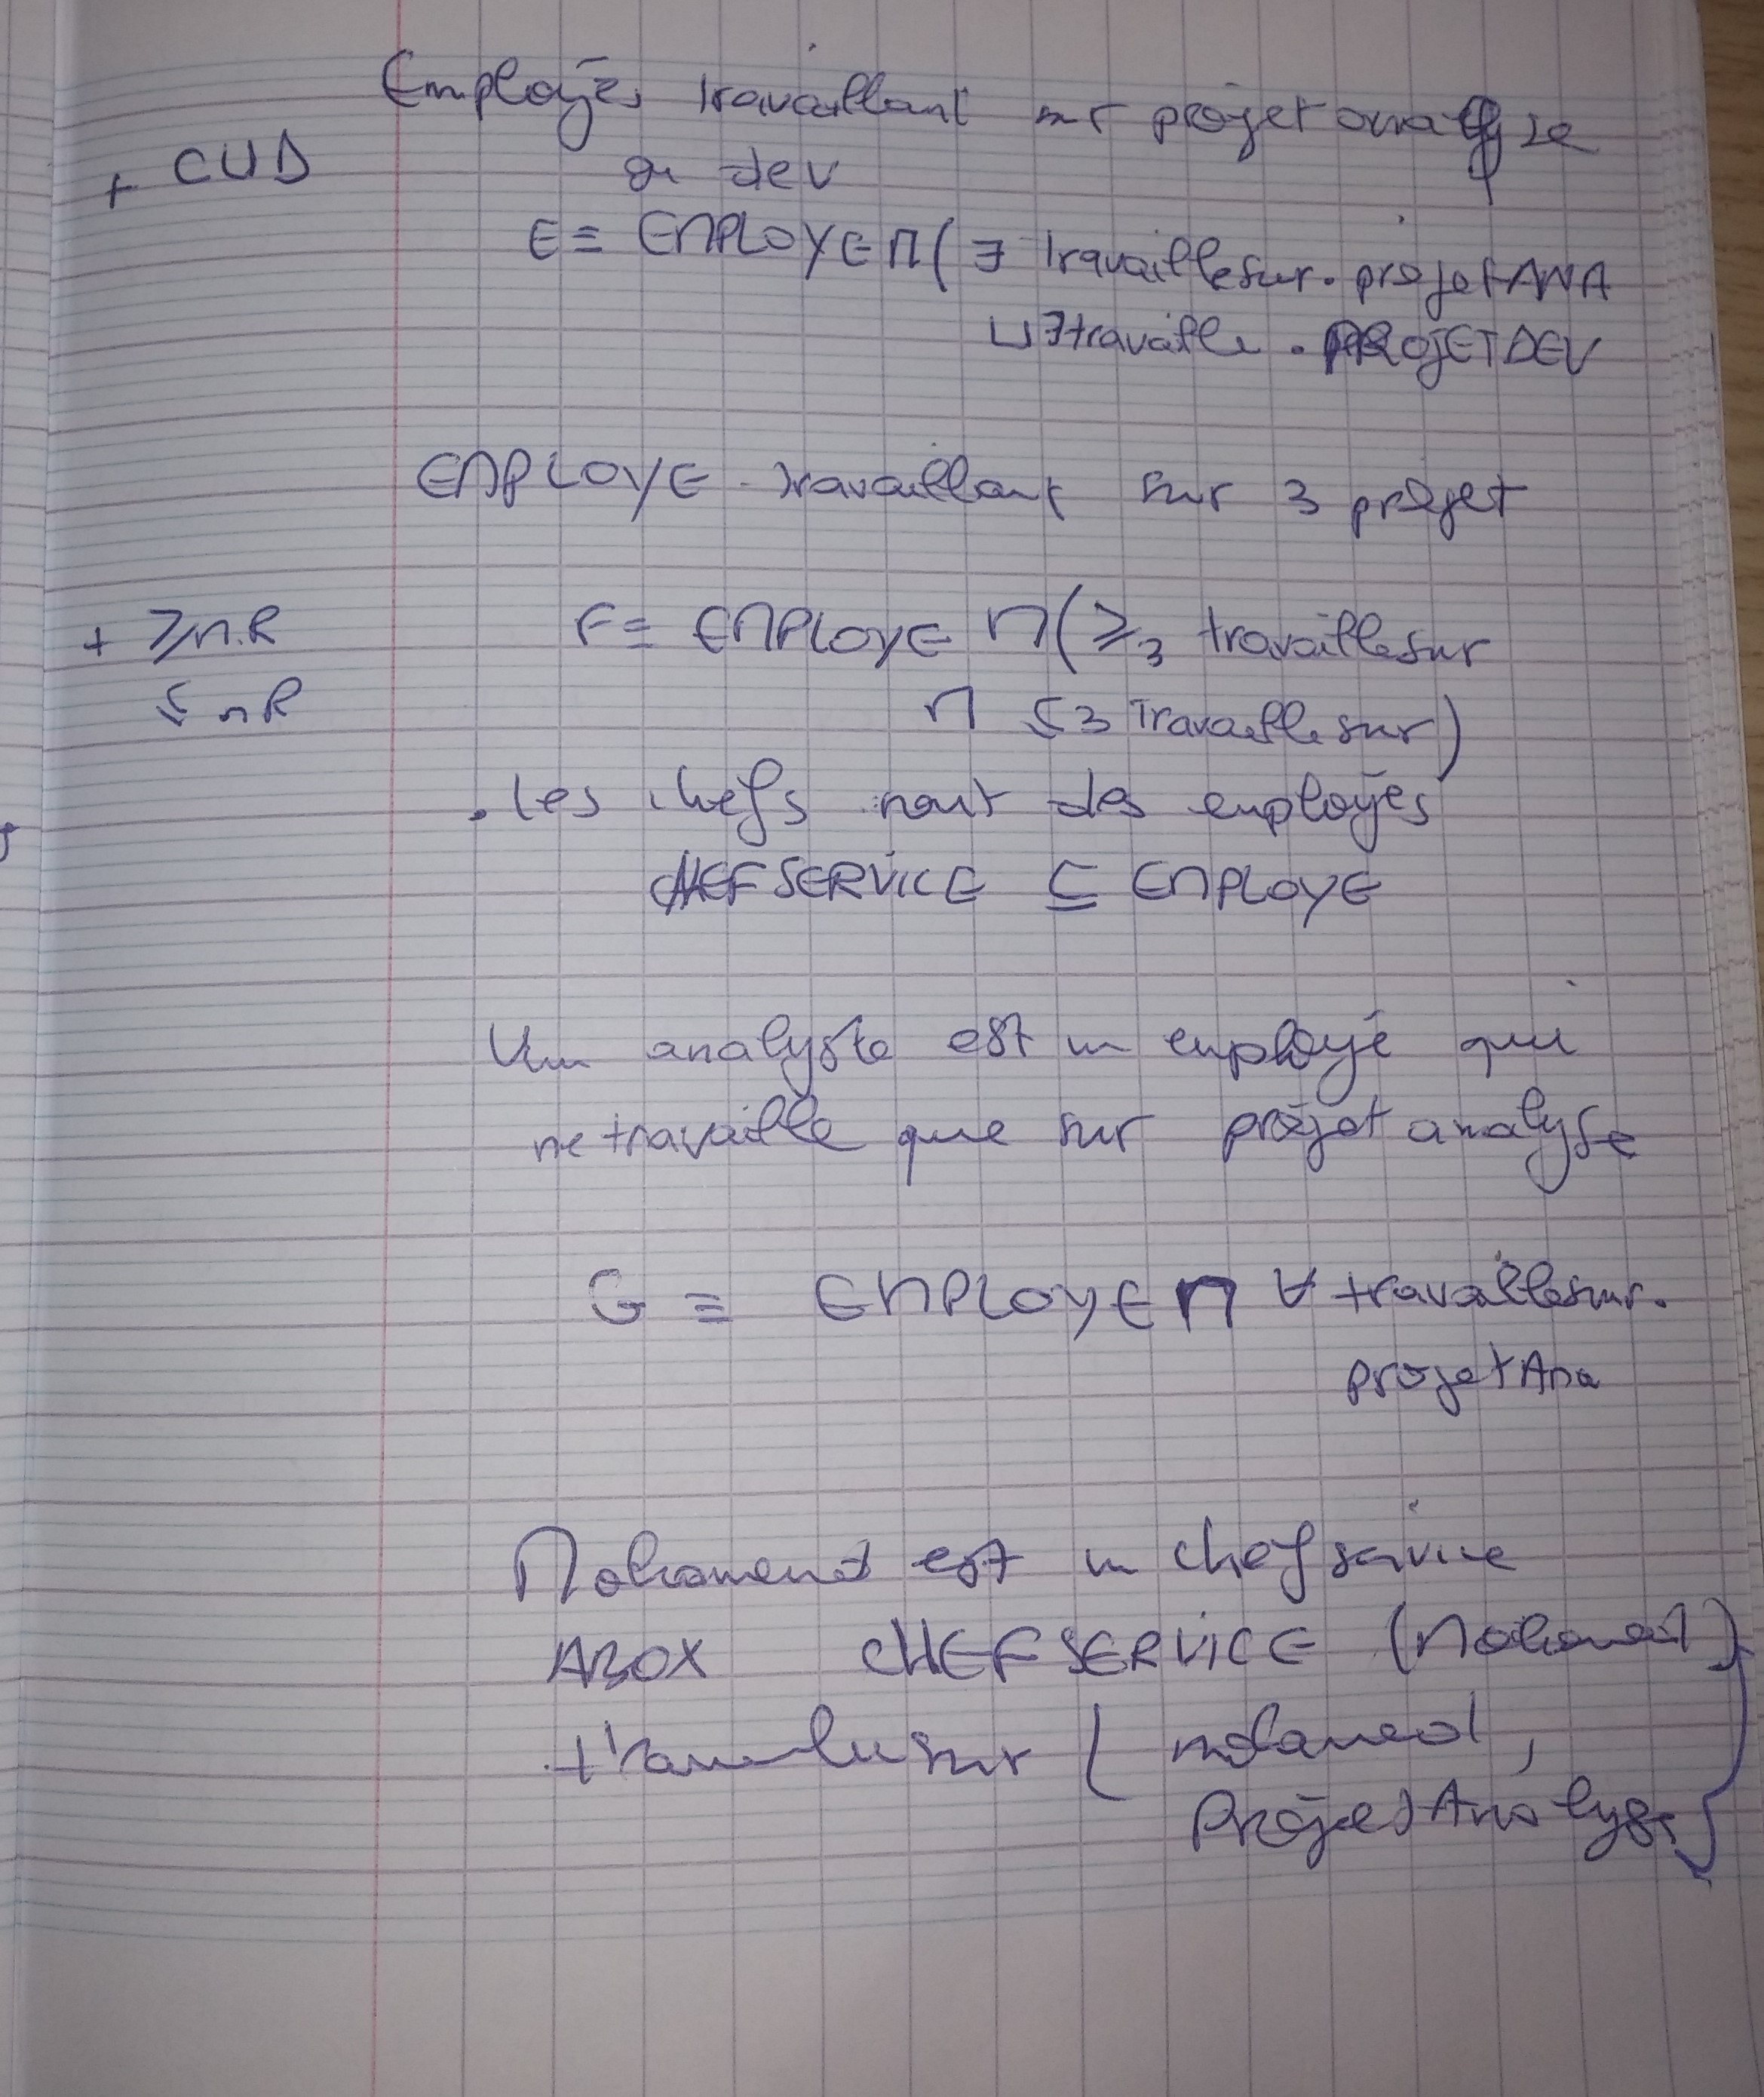 Employés travaillant sur projet analyse
+ CUD ou dev
E ≡ EMPLOYE ⊓ ( ∃ travaillesur . projetANA
⊔ ∃ travaille . PROJETDEV
EMPLOYE travaillant sur 3 projet
+ ≥ n.R F ≡ EMPLOYE ⊓ ( ≥ 3 travaillesur
≤ nR ⊓ ≤ 3 Travaillesur )
. les chefs sont des employés
CHEFSERVICE ⊆ EMPLOYE
Un analyste est un employé qui
ne travaille que sur projet analyse
G ≡ EMPLOYE ⊓ ∀ travaillesur.
projetAna
Mohamed est un chef service
ABOX CHEFSERVICE (Mohamed)
travaillesur ( mohamed ,
ProjetAnalyse )